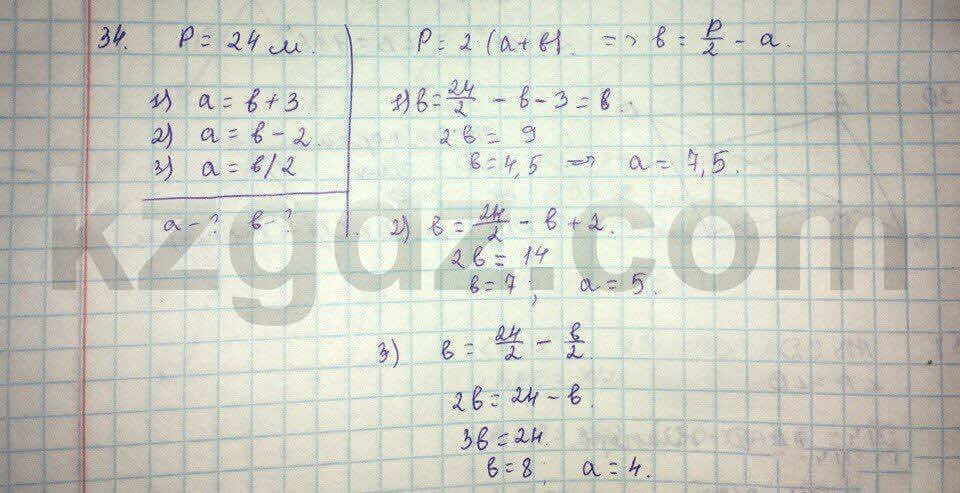 34. P = 24 м.
1) a = b + 3
2) a = b - 2.
3) a = b/2
a - ? b - ?
P = 2 (a + b). => b = P/2 - a.
1) b = 24/2 - b - 3 = b.
2b = 9
b = 4,5 => a = 7,5.
2) b = 24/2 - b + 2.
2b = 14
b = 7; a = 5.
3) b = 24/2 - b/2.
2b = 24 - b.
3b = 24.
b = 8; a = 4.
kzgdz.com